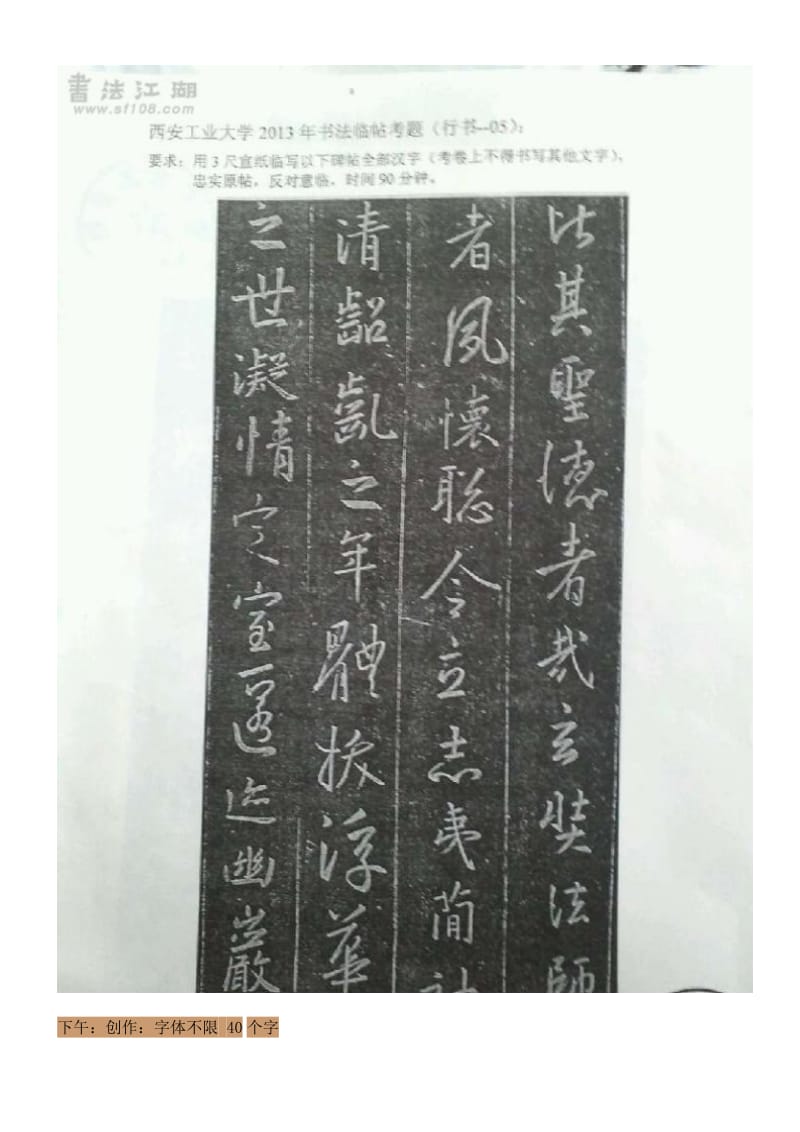 書法江湖
www.sf108.com
西安工业大学2013年书法临帖考题（行书--05）：
要求：用3尺宣纸临写以下碑帖全部汉字（考卷上不得书写其他文字），
忠实原帖，反对意临。时间90分钟。
比其聖德者哉玄奘法師
者夙懷聡令立志夷簡神
清齠齓之年體拔浮華
之世凝情定室匿迹幽巖
下午：创作：字体不限 40个字